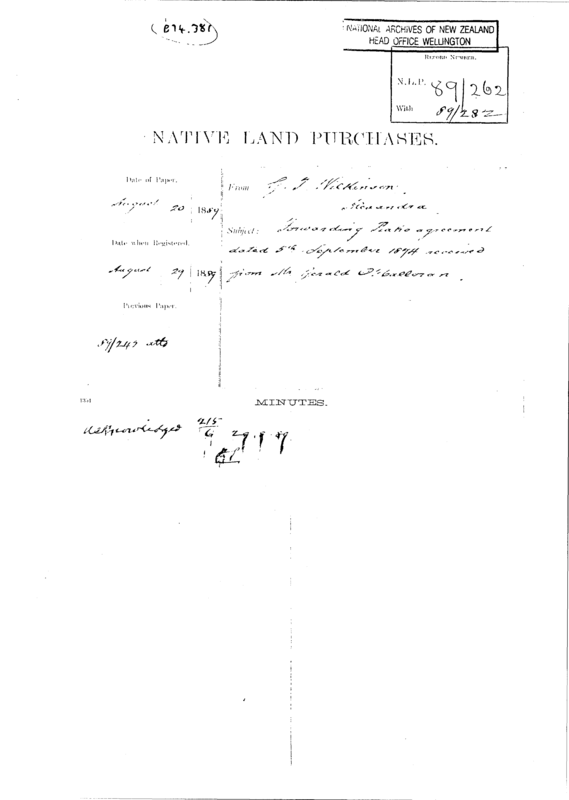 (B74.381)
NATIONAL ARCHIVES OF NEW ZEALAND
HEAD OFFICE WELLINGTON
N.L.P. 89/262
With 89/282
NATIVE LAND PURCHASES.
Date of Paper.
August 20 1889
Date when Registered.
August 29 1889
Previous Paper.
89/247 atts
From G T Wilkinson
Alexandra
Subject: Forwarding agreement
dated 5th September 1874 received
from Mr Gerald O'Halloran.
MINUTES.
Acknowledged 215
G 29.8.89.